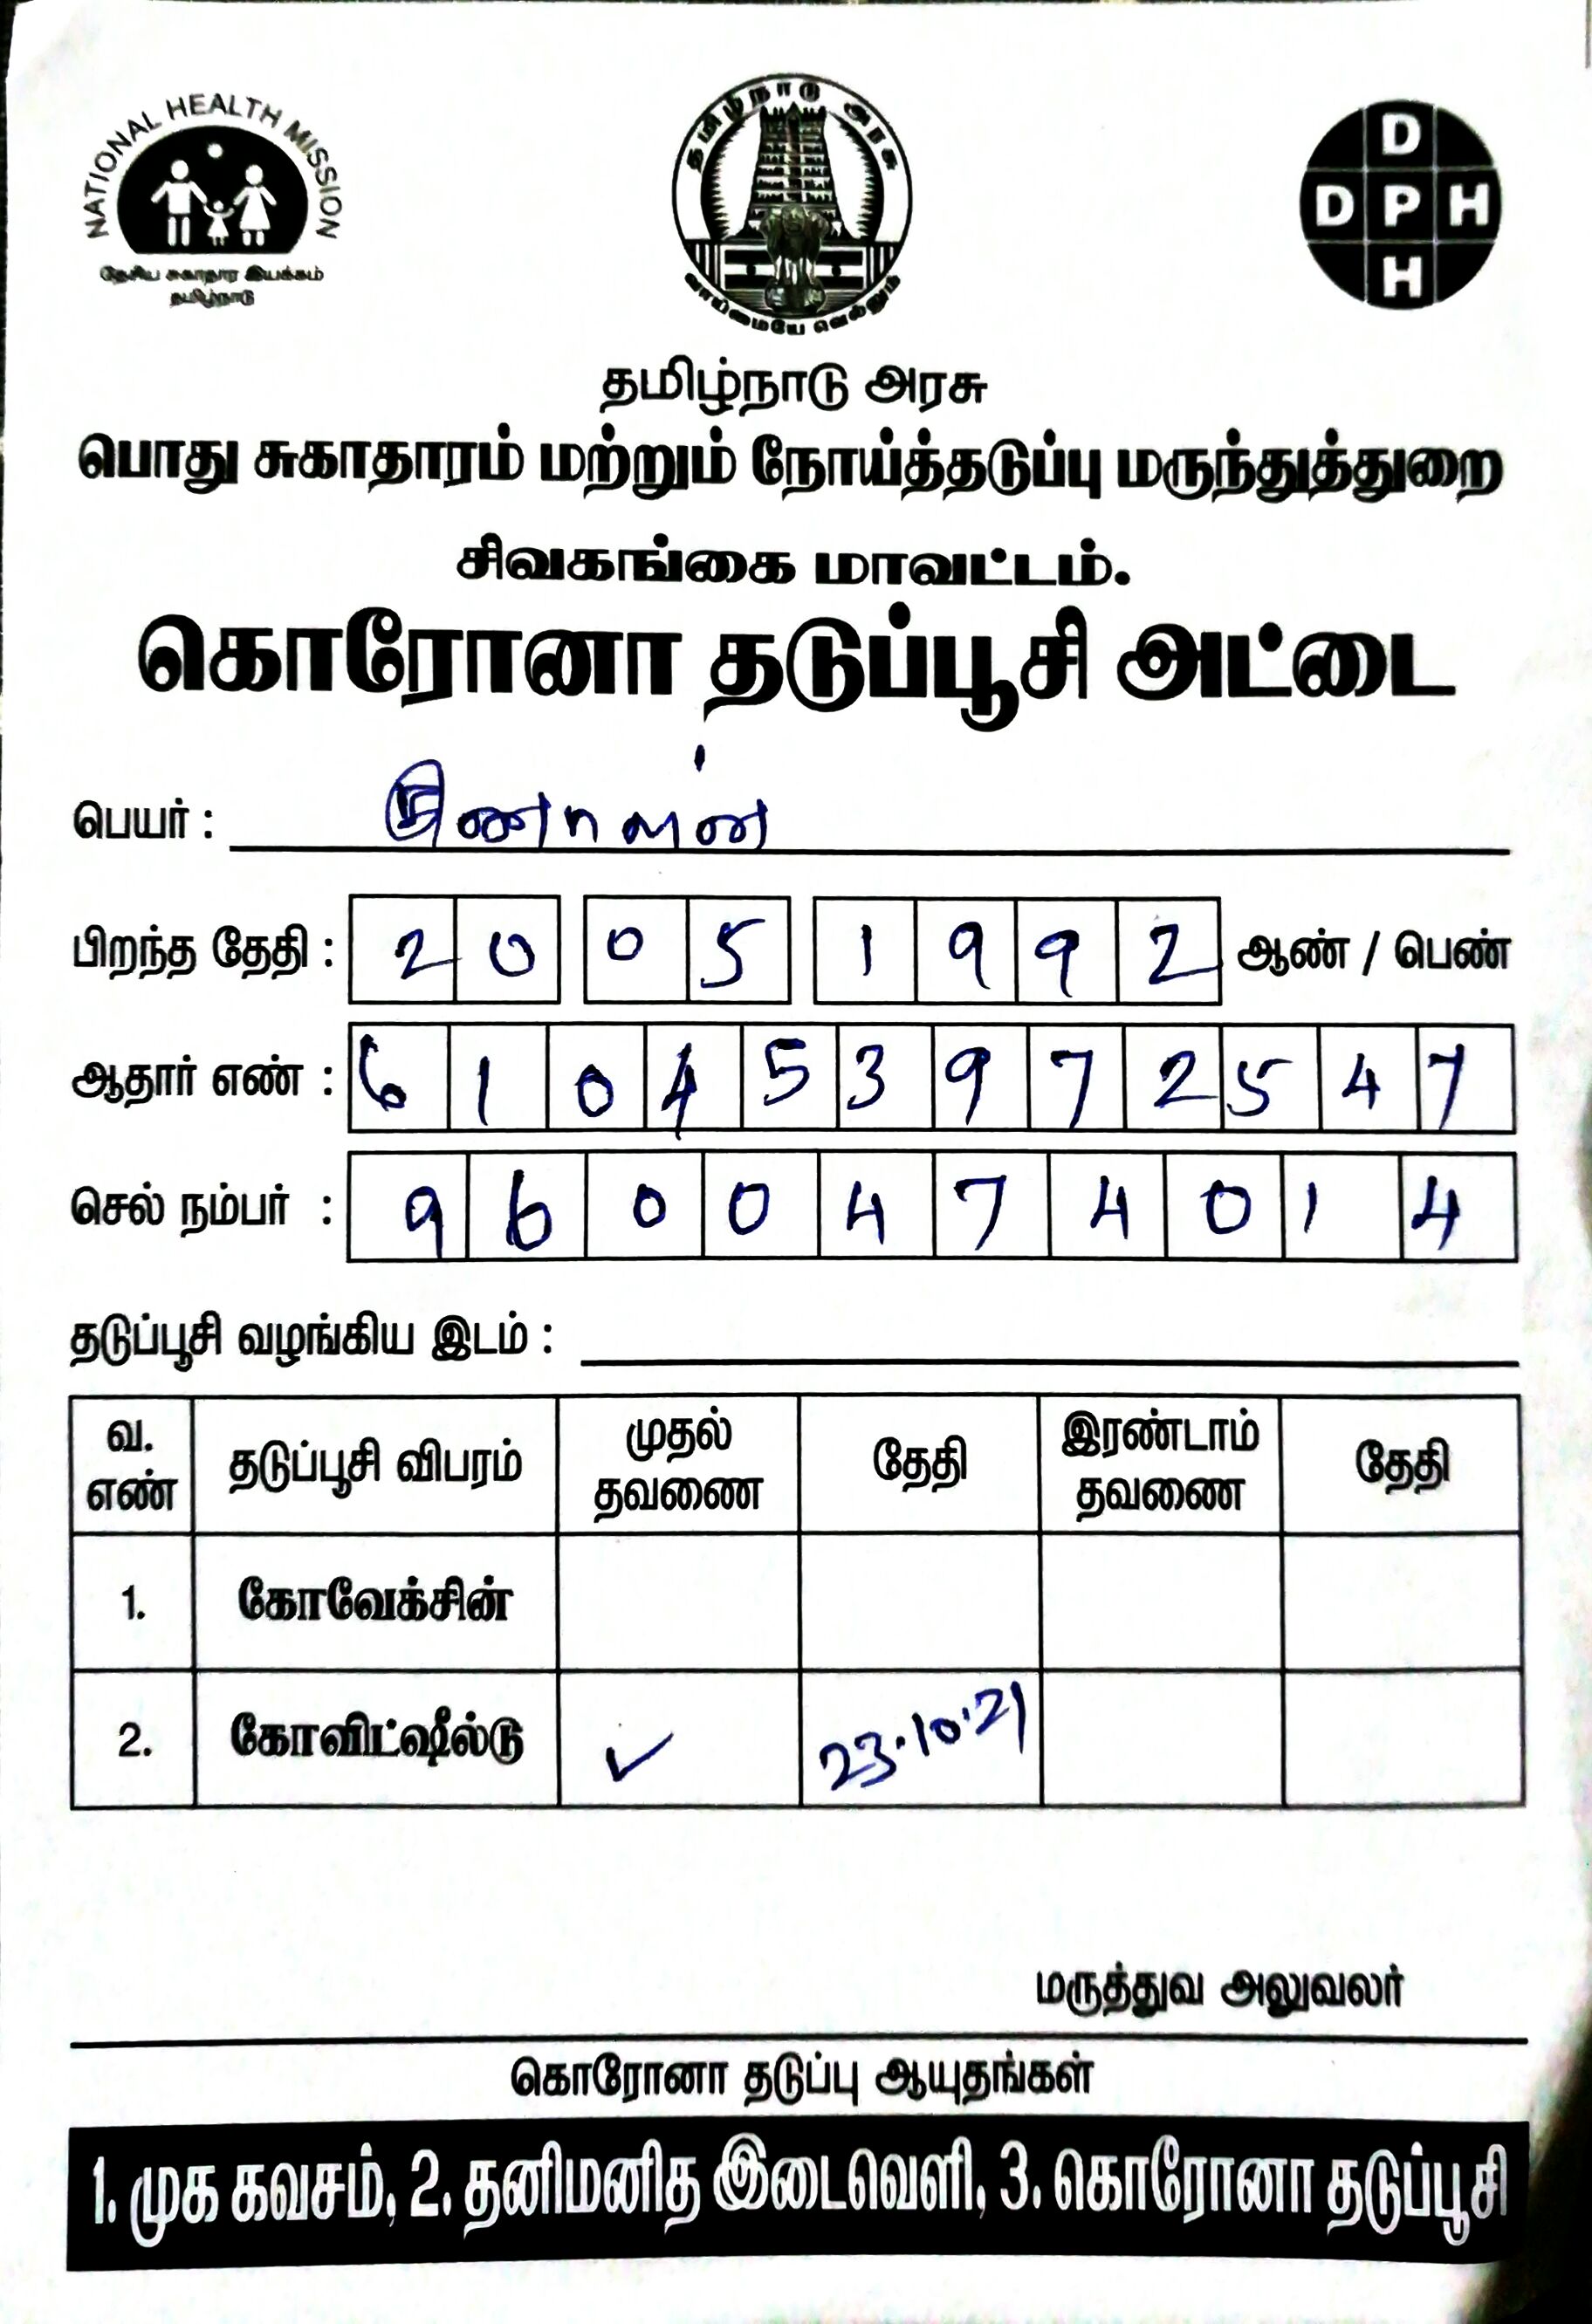 NATIONAL HEALTH MISSION
தேசிய சுகாதார இயக்கம்
தமிழ்நாடு
தமிழ்நாடு அரசு
வாய்மையே வெல்லும்
D
D P H
H
தமிழ்நாடு அரசு
பொது சுகாதாரம் மற்றும் நோய்த்தடுப்பு மருந்துத்துறை
சிவகங்கை மாவட்டம்.
கொரோனா தடுப்பூசி அட்டை
பெயர் :
பிறந்த தேதி : 20 05 1992 ஆண் / பெண்
ஆதார் எண் : 610453972547
செல் நம்பர் : 9600474014
தடுப்பூசி வழங்கிய இடம் :
வ. எண் தடுப்பூசி விபரம் முதல் தவணை தேதி இரண்டாம் தவணை தேதி
1. கோவேக்சின்
2. கோவிட்ஷீல்டு ✓ 23.10.21
மருத்துவ அலுவலர்
கொரோனா தடுப்பு ஆயுதங்கள்
1. முக கவசம், 2. தனிமனித இடைவெளி, 3. கொரோனா தடுப்பூசி